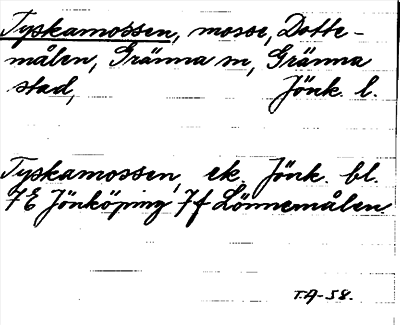 Tyskamossen, mosse, Dotte-
målen, Gränna sn, Gränna
stad, Jönk. l.
Tyskamossen, ek. Jönk. bl.
7E Jönköping 7f Lönnemålen.
T.A-58.